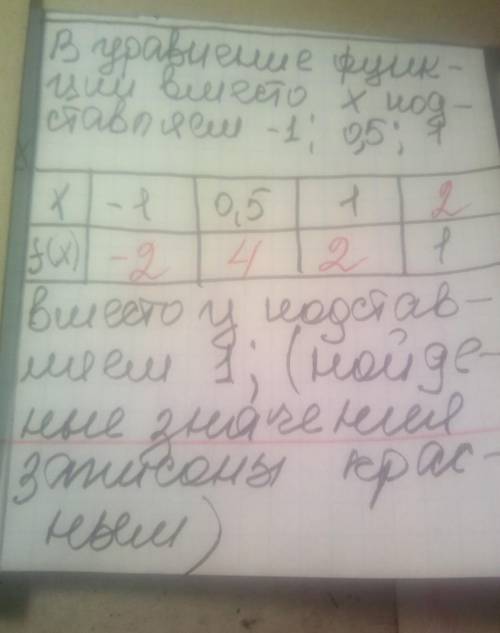 В уравнение функ-
ции вместо x под-
ставляем -1; 0,5; 1
x -1 0,5 1 2
f(x) -2 4 2 1
вместо y подстав-
ляем 1; (найде-
ные значения
записаны крас-
ным)